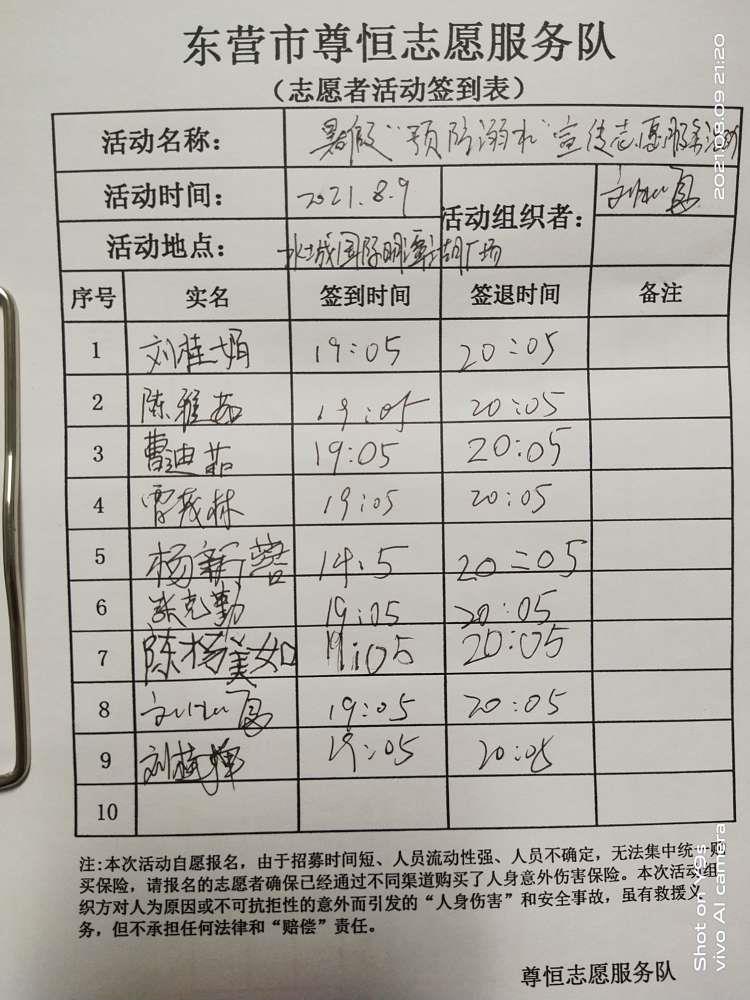 东营市尊恒志愿服务队
（志愿者活动签到表）
活动名称： 暑假“预防溺水”宣传志愿服务活动
活动时间： 2021.8.9 活动组织者：
活动地点： 水城国际明潭湖广场
序号 实名 签到时间 签退时间 备注
1 刘桂娟 19:05 20:05
2 陈雅茹 19:05 20:05
3 曹迪茹 19:05 20:05
4 雷茂林 19:05 20:05
5 杨新蕾 14:5 20:05
6 张克勤 19:05 20:05
7 陈杨美如 19:05 20:05
8 19:05 20:05
9 刘 19:05 20:05
10
注:本次活动自愿报名，由于招募时间短、人员流动性强、人员不确定，无法集中统一购
买保险，请报名的志愿者确保已经通过不同渠道购买了人身意外伤害保险。本次活动组
织方对人为原因或不可抗拒性的意外而引发的“人身伤害”和安全事故，虽有救援义
务，但不承担任何法律和“赔偿”责任。
尊恒志愿服务队
2021.08.09 21:20
Shot on Y9s
vivo AI camera